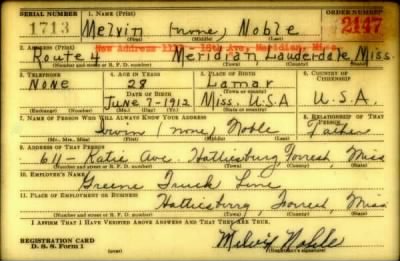 SERIAL NUMBER 1. NAME (Print) ORDER NUMBER
1713 Melvin (none) Noble 2147
(First) (Middle) (Last)
2. ADDRESS (Print) New Address 18th Ave, Meridian, Miss.
Route 4 Meridian Lauderdale Miss.
(Number and street or R. F. D. number) (Town) (County) (State)
3. TELEPHONE 4. AGE IN YEARS 5. PLACE OF BIRTH 6. COUNTRY OF CITIZENSHIP
None 28 Lamar
DATE OF BIRTH
June 7-1912 Miss. U.S.A U.S.A.
(Exchange) (Number) (Mo.) (Day) (Yr.) (State or country)
7. NAME OF PERSON WHO WILL ALWAYS KNOW YOUR ADDRESS 8. RELATIONSHIP OF THAT PERSON
(none) Noble Father
(Mr., Mrs., Miss) (First) (Middle) (Last)
9. ADDRESS OF THAT PERSON
611- Katie Ave. Hattiesburg Forrest, Miss
(Number and street or R. F. D. number) (Town) (County) (State)
10. EMPLOYER'S NAME
Greene Truck Line
11. PLACE OF EMPLOYMENT OR BUSINESS
Hattiesburg, Forrest, Miss
(Number and street or R. F. D. number) (Town) (County) (State)
I AFFIRM THAT I HAVE VERIFIED ABOVE ANSWERS AND THAT THEY ARE TRUE.
REGISTRATION CARD
D. S. S. Form 1 Melvin Noble
(Registrant's signature)